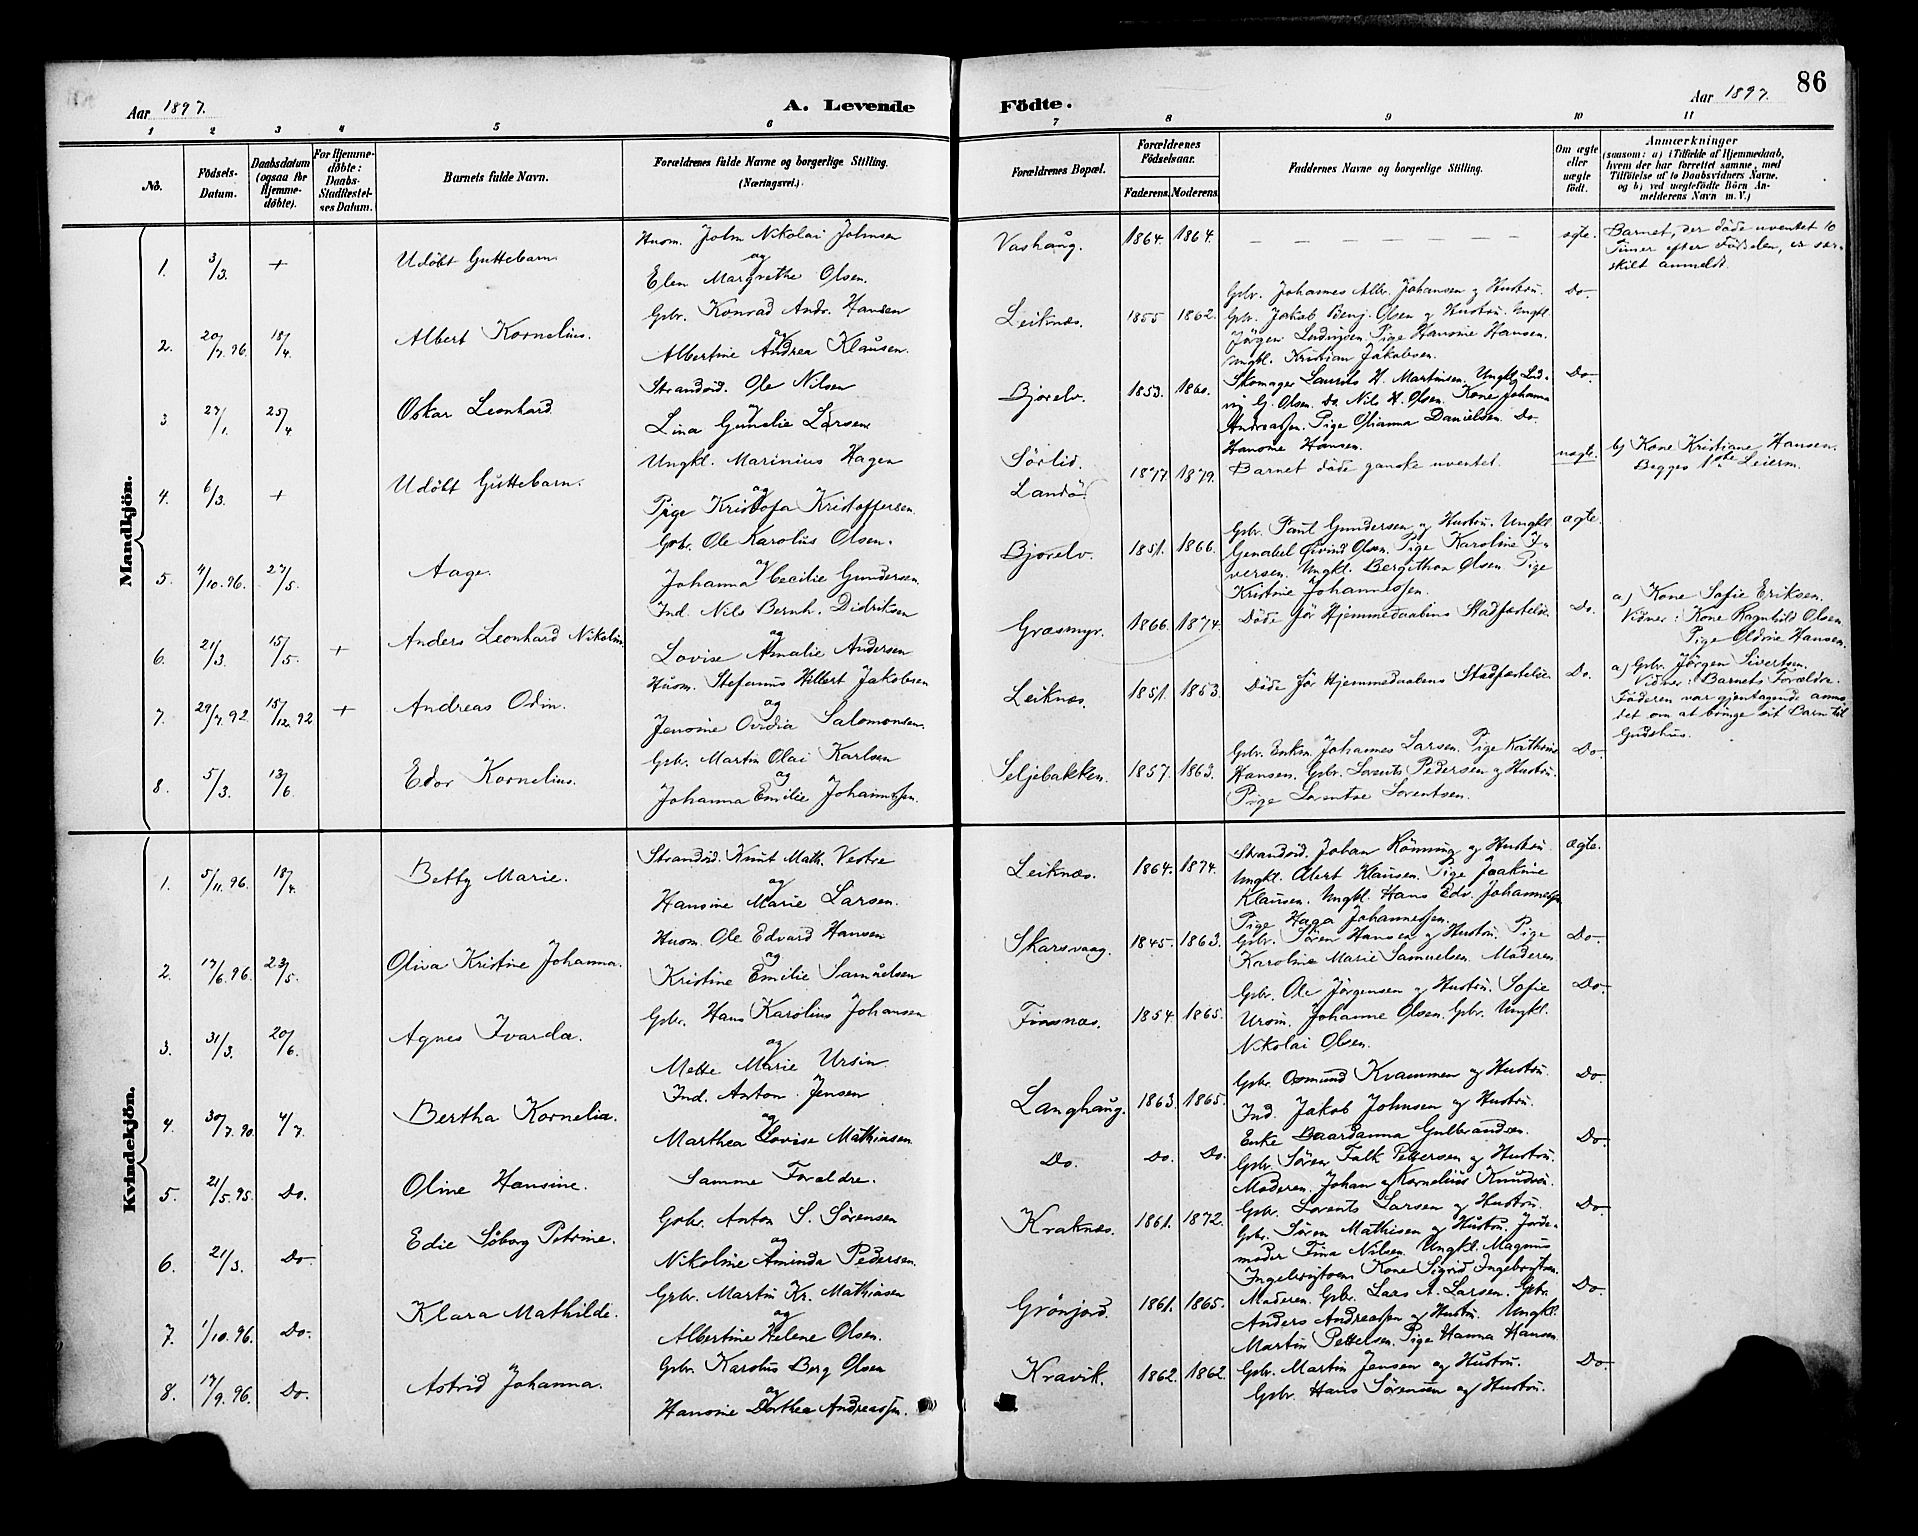 86
Aar 1897.
A. Levende Födte.
Aar 1897.
1 2 3 4 5 6 7 8 9 10 11
No.
Födsels-Datum.
Daabsdatum (ogsaa for Hjemme-døbte).
For Hjemme-døbte: Daabs-Stadfæstel-ses Datum.
Barnets fulde Navn.
Forældrenes fulde Navne og borgerlige Stilling.
(Næringsvei.)
Forældrenes Bopæl.
Forældrenes Födselsaar.
Faderens. Moderens.
Faddernes Navne og borgerlige Stilling.
Om ægte eller uægte födt.
Anmærkninger
(saasom: a) i Tilfælde af Hjemmedaab,
hvem der har forrettet samme, med
Tilföielse af to Daabsvidners Navne.
og b) ved uægtefödte Börn An-
melderens Navn m. V.)
Mandkjön.
1. 3/3. + Udöbt Guttebarn.
Husm. Johm Nikolai Johnsen
og
Elen Margrethe Olsen.
Vashaug. 1864. 1864. — — — — — — — — — ægte.
Barnet, der døde uventet 10
Timer efter Fødselen, er sær-
skilt anmeldt.
2. 20/7.96. 18/4. Albert Kornelius.
Gbr. Konrad Andr. Hansen
og
Albertine Andrea Klausen.
Leiknæs. 1855 1862.
Gbr. Johannes Alb. Johansen og Hustru.
Gbr. Jakob Benj. Olsen og Hustru. Ungkl.
Jörgen Ludvigsen. Pige Hansine Hansen.
Ungkl. Kristian Jakobsen.
Do.
3 27/1. 25/4 Oskar Leonhard.
Strandsid. Ole Nilsen
og
Lina Gunelie Larsen
Bjorelv. 1853. 1860.
Skomager Laurits H. Martinsen. Ungkl. Lud-
vig G. Olsen. Do. Nils H. Olsen. Kone Johanna
Andreassen. Pige Olianna Danielsen. Do.
Hansine Hansen.
Do.
4. 6/3. + Udöbt Guttebarn.
Ungkl. Marinius Hagen
og
Pige Kristofa Kristoffersen
Sörlid.
Landö. 1877. 1879. Barnet døde ganske uventet. uægte.
b) Kone Kristiane Hansen.
Begges 1ste Leierm.
5. 4/10.96. 27/5. Aage.
Gbr. Ole Karolius Olsen.
og
Johanna Cecilie Gundersen.
Bjorelv. 1851. 1866.
Gbr. Paul Gundersen og Hustru. Ungkl.
Genabel Øivind Olsen. Pige Karoline I-
versen. Ungkl. Bergithon Olsen Pige
Kristine Johannessen.
ægte.
6. 21/3. 15/5. + Anders Leonhard Nikolai
Ind. Nils Bernh. Didriksen
og
Lovise Amalie Andersen
Græsmyr. 1866. 1874. Døde før Hjemmedaabens Stadfæstelse. Do.
a) Kone Sofie Eriksen.
Vidner: Kone Ragnhild Olsen
Pige Oldine Hansen.
7. 29/7.92 15/12.92 + Andreas Odin.
Husm. Stefanus Hilbert Jakobsen
og
Jensine Ovidia Salomonsen.
Leiknæs. 1851. 1853. Døde før Hjemmedaabens Stadfæstelse. Do.
a) Gbr. Jörgen Sivertsen.
Vidner: Barnets Forældre.
Faderen var gjentagende anmo-
det om at bringe sit Barn til
Gudshus.
8. 5/3. 13/6 Edor Kornelius.
Gbr. Martin Olai Karlsen
og
Johanna Emilie Johannessen.
Seljebakken. 1857. 1863.
Gbr. Enkm. Johannes Larsen. Pige Kathrine
Hansen. Gbr. Lorents Pedersen og Hustru.
Pige Lorentse Lorentsen.
Do.
Kvindekjön.
1. 5/11.96. 18/4. Betty Marie.
Strandsid. Knut Math. Vestre
og
Hansine Marie Larsen.
Leiknæs. 1864. 1874.
Strandsid. Johan Rönning og Hustru
Ungkl. Albert Klausen. Pige Joakine
Klausen. Ungkl. Hans Edv. Johannessen
Pige Haga Johannessen.
Ægte.
2. 17/6.96. 23/5. Oliva Kristine Johanna.
Husm. Ole Edvard Hansen
og
Kristine Emilie Samuelsen
Skarsvaag. 1845. 1863.
Gbr. Sören Hansen og Hustru. Pige
Karoline Marie Samuelsen. Moderen.
Do.
3. 31/3. 20/6. Agnes Ivarda.
Gbr. Hans Karolius Johansen
og
Mette Marie Ursin
Finsnæs. 1854 1865.
Gbr. Ole Jörgensen og Hustru. Sofie
Ursin. Johanne Olsen. Gbr. Ungkl.
Nikolai Olsen.
Do.
4. 30/7.90. 4/7. Bertha Kornelia.
Ind. Anton Jensen
og
Marthea Lovise Mathiasen
Langhaug. 1863. 1865.
Gbr. Osmund Kvammen og Hustru.
Ind. Jakob Johnsen og Hustru.
Enke Baardanna Gulbrandsen.
Do.
5. 21/5.95. Do. Oline Hansine.
Samme Forældre.
Do. Do. Do.
Gbr. Sören Falk Pettersen og Hustru.
Moderen. Johan og Kornelius Knudsen.
Do.
6. 21/3. Do. Edie Söborg Petrine.
Gbr. Anton S. Sörensen
og
Nikoline Aminda Pedersen.
Kraknæs. 1861. 1872.
Gbr. Lorents Larsen og Hustru.
Gbr. Sören Mathisen og Hustru. Jorde-
moder Tina Nilsen. Ungkl. Magnus
Ingebrigtsen Kone Sigrid Ingebrigtsen.
Do.
7. 1/10.96. Do. Klara Mathilde.
Gbr. Martin Kr. Mathiasen
og
Albertine Helene Olsen.
Grönjord. 1861. 1865.
Moderen. Gbr. Laas A. Larsen. Gbr.
Anders Andreassen og Hustru. Ungkl.
Martin Pettersen. Pige Hanna Hansen.
Do.
8. 17/9.96. Do. Astrid Johanna.
Gbr. Karolus Berg Olsen
og
Hansine Dorthea Andreassen.
Kravik. 1862. 1862.
Gbr. Martin Jensen og Hustru.
Gbr. Hans Sörensen og Hustru.
Do.